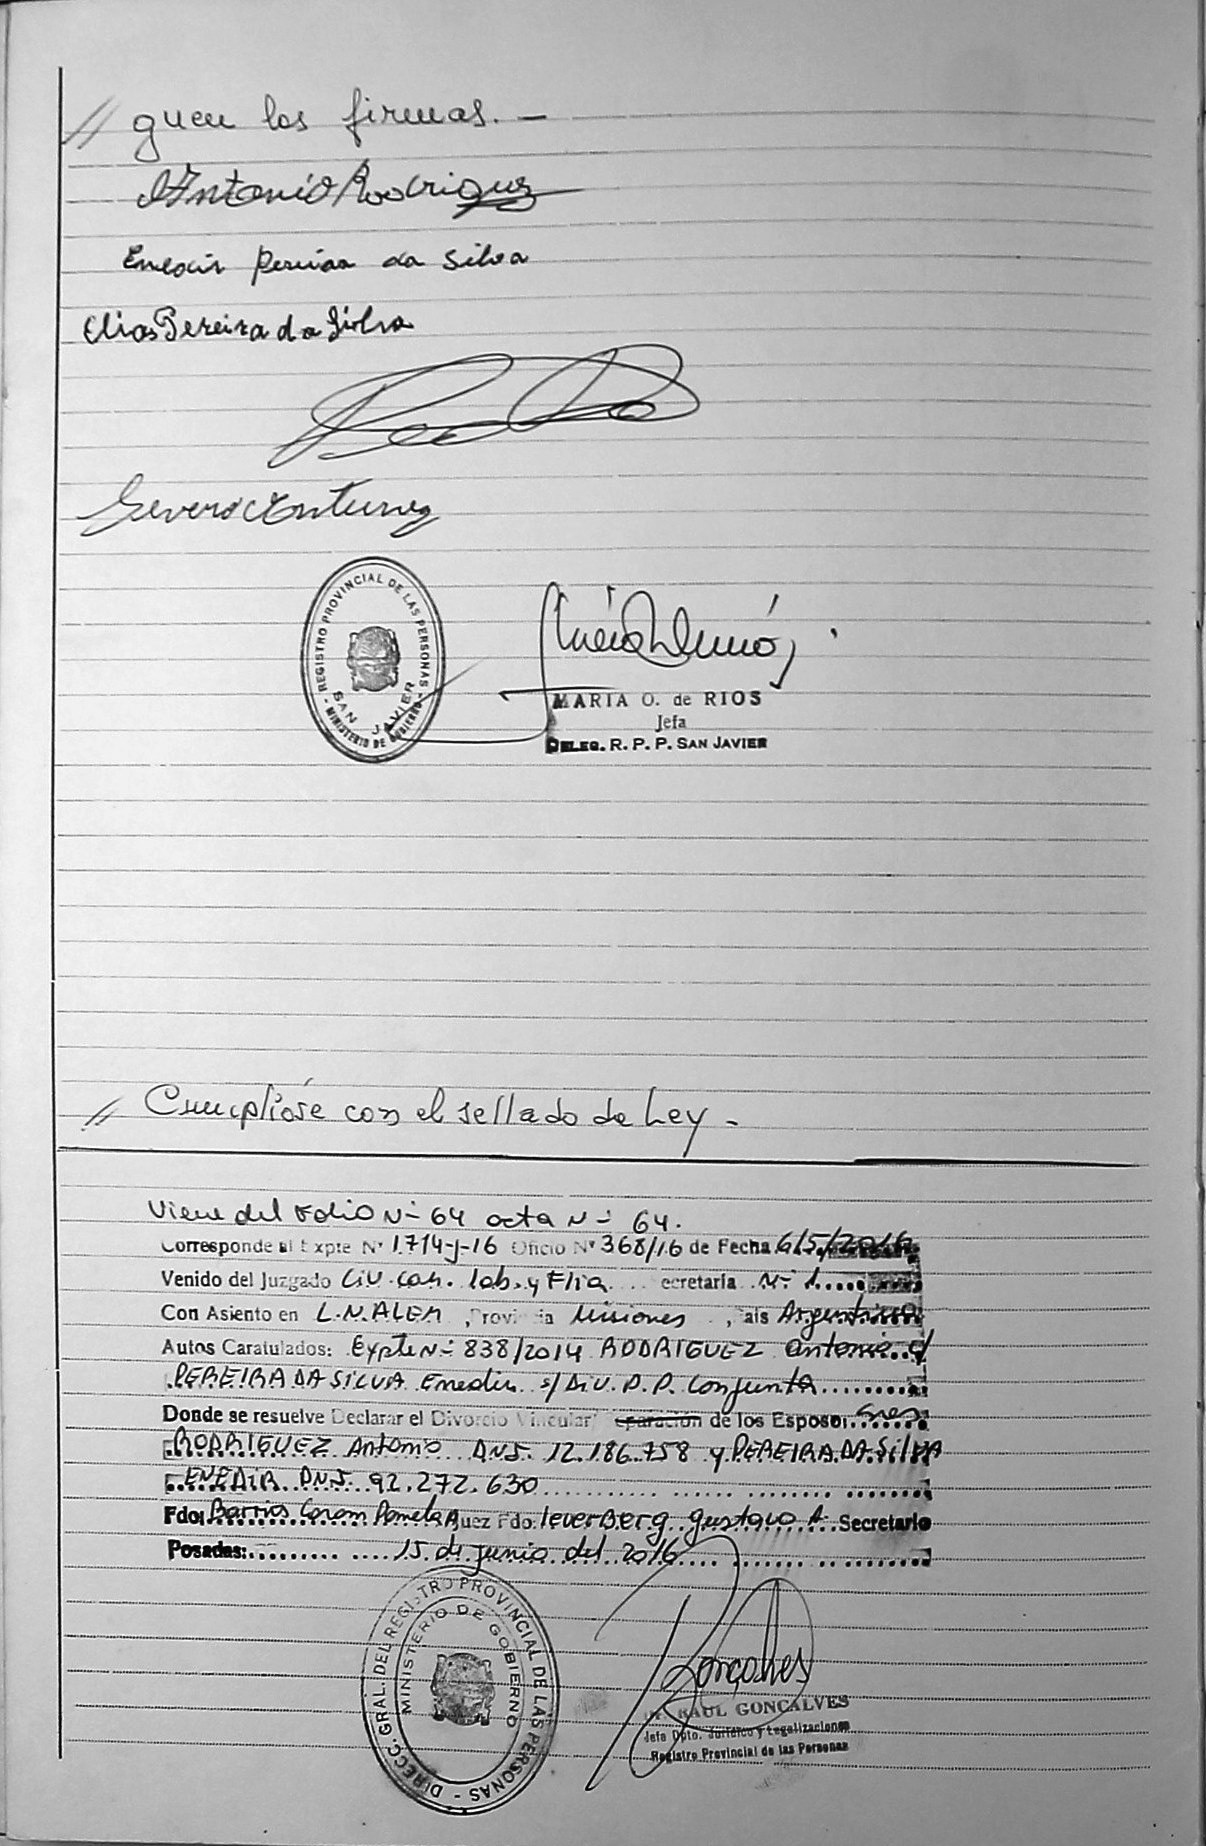 // guen las firmas. —
Antonio Rodriguez
Enedir Pereira da Silva
Elias Pereira da Silva
Severo Antunez
REGISTRO PROVINCIAL DE LAS PERSONAS
SAN JAVIER
MINISTERIO DE GOBIERNO
MARIA O. de RIOS
Jefa
DELEG. R. P. P. SAN JAVIER
// Cumplióse con el sellado de Ley -
Viene del Folio Nº 64 acta Nº 64.
Corresponde al Expte Nº 1.714-J-16 Oficio Nº 368/16 de Fecha 6/5/2016
Venido del Juzgado Civ. com. lab. y Flia. Secretaría Nº 1
Con Asiento en L.N. ALEM, Provincia Misiones, País Argentina
Autos Caratulados: Expte Nº 838/2014 RODRIGUEZ Antonio c/
PEREIRA DA SILVA Enedir s/ Div. P. P. Conjunta
Donde se resuelve Declarar el Divorcio Vincular/ Separación de los Esposos Sres
RODRIGUEZ Antonio DNI. 12.186.758 y PEREIRA DA SILVA
ENEDIR DNI. 92.272.630
Fdo: Barrios Pamela Juez Fdo: Gustavo A. Secretario
Posadas: 15 de junio del 2016
DIRECC. GRAL. DEL REGISTRO PROVINCIAL DE LAS PERSONAS -
MINISTERIO DE GOBIERNO
Goncalves
RAUL GONCALVES
Jefe Dpto. Jurídico y Legalizaciones
Registro Provincial de las Personas